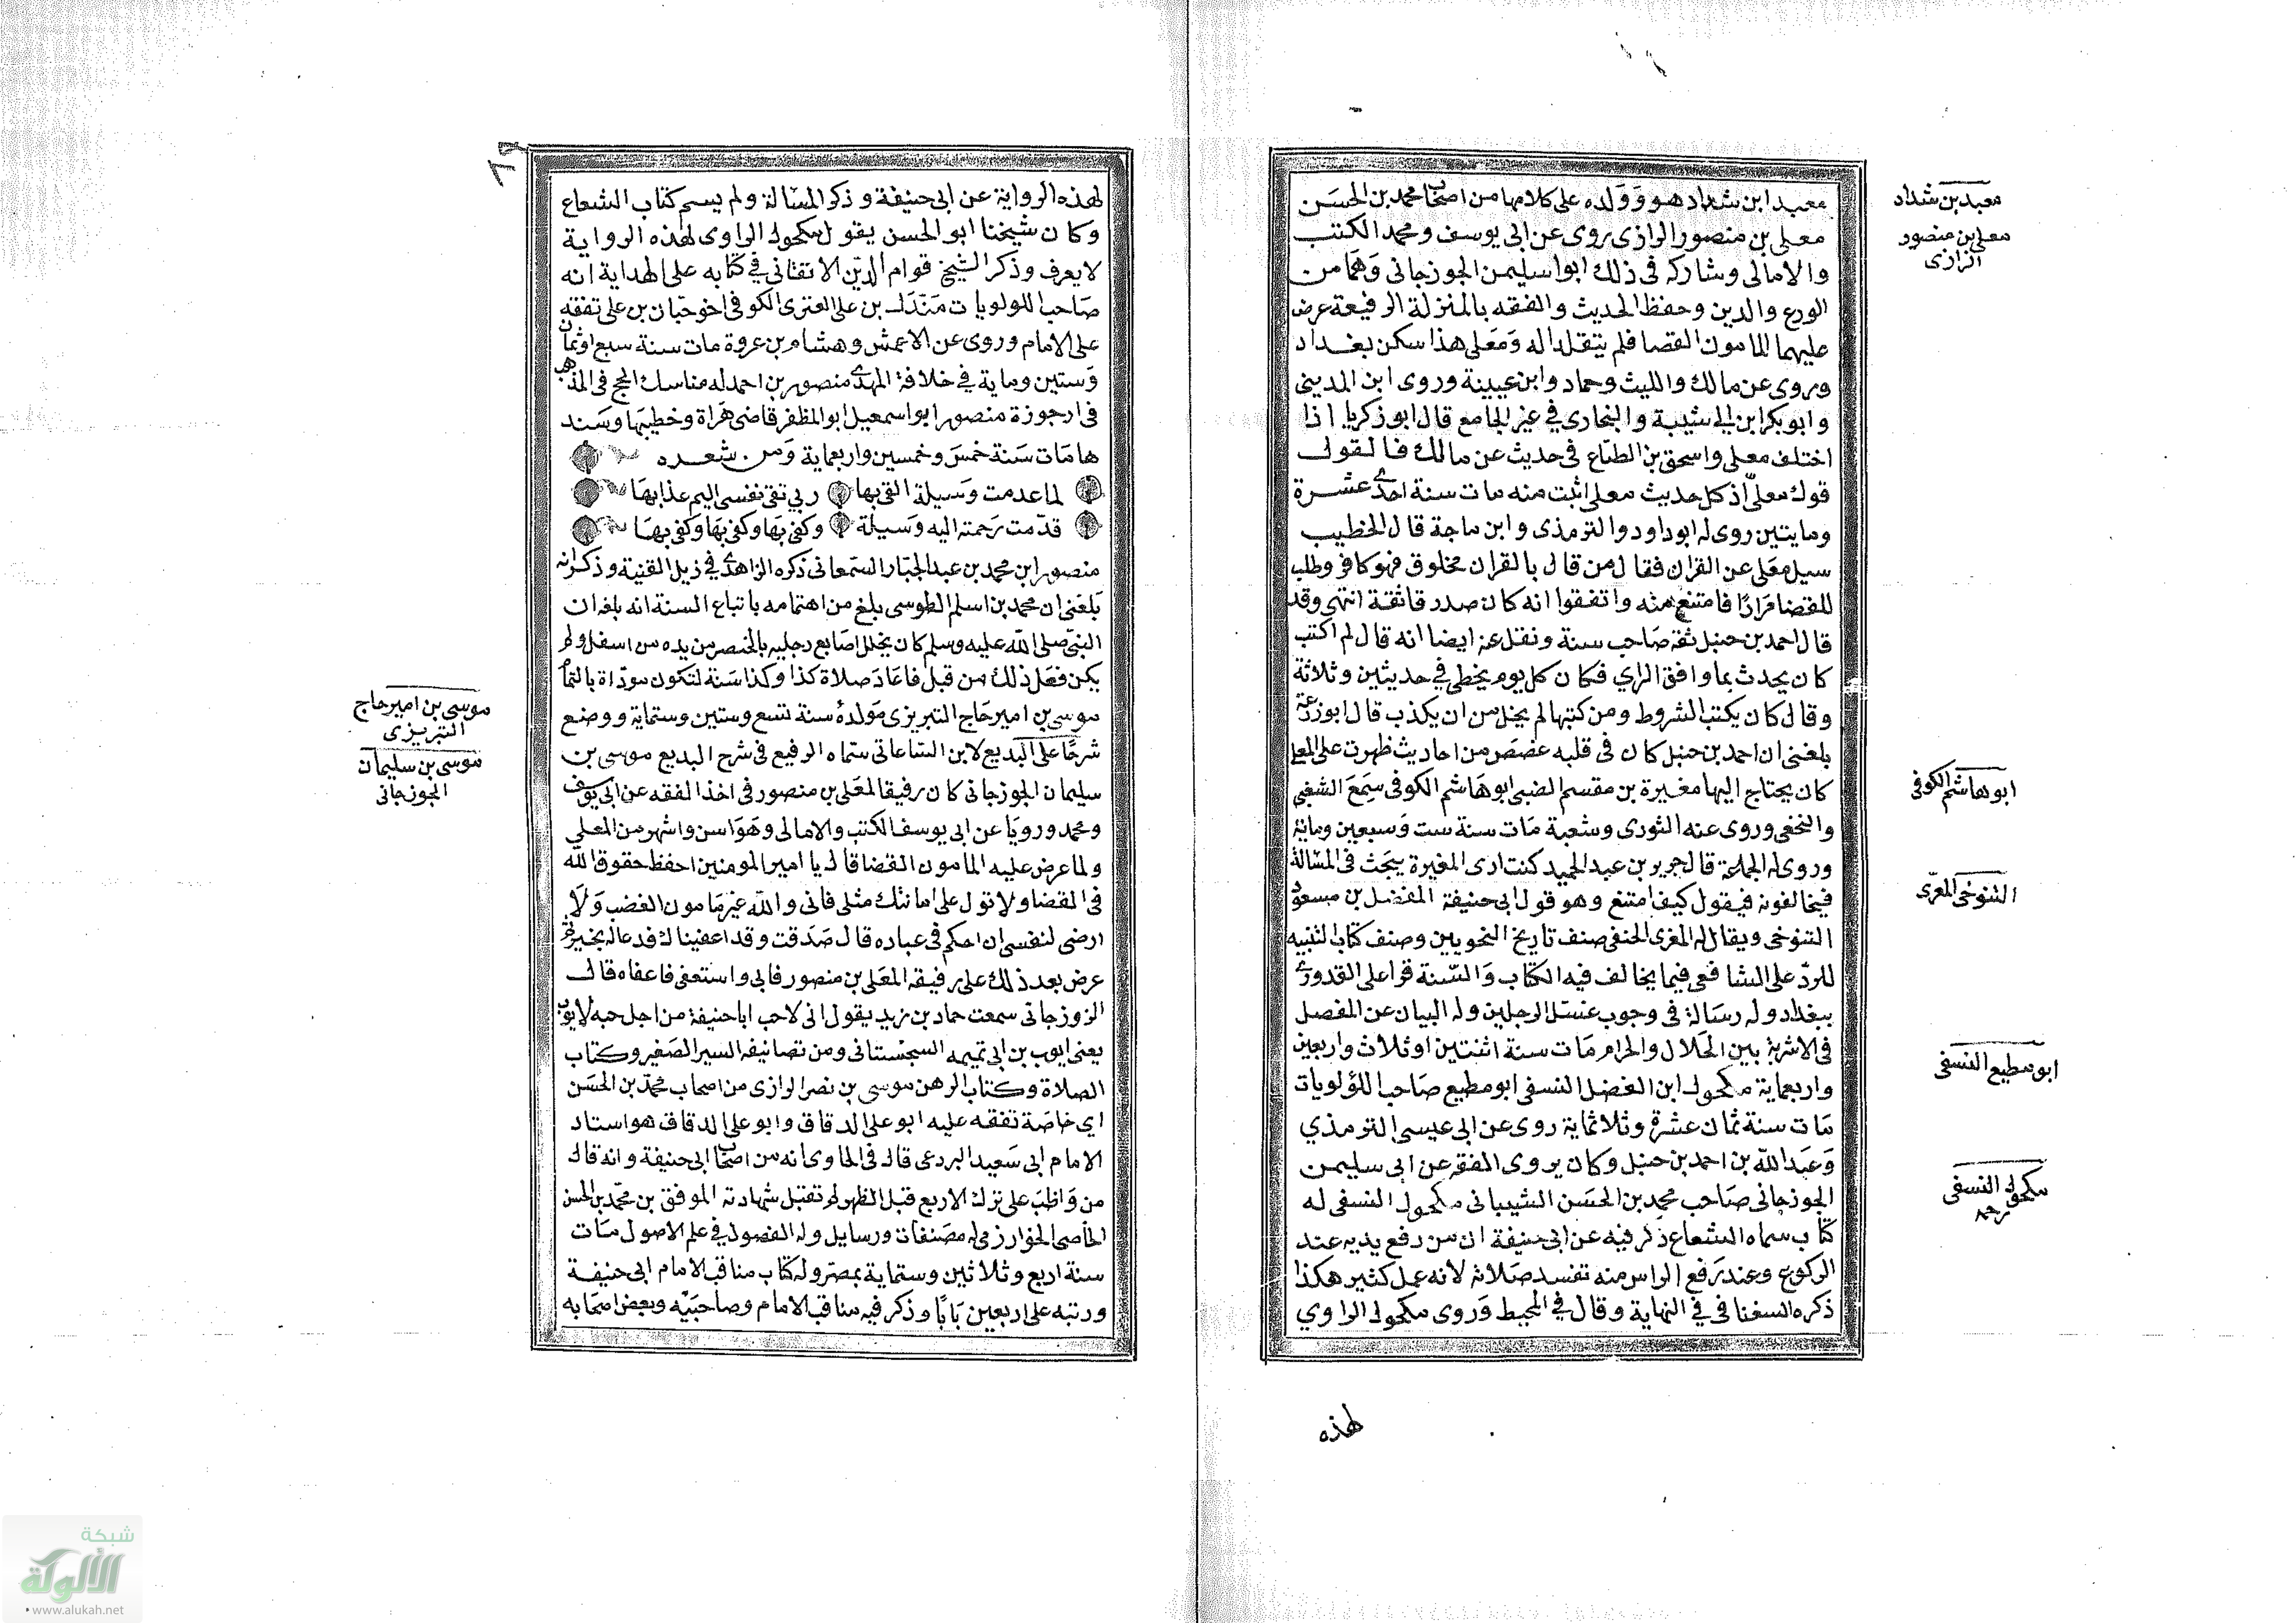 معبد ابن شداد هو وولده على كلامها من اصحاب محمد بن الحسن
معلى بن منصور الرازى روى عن ابى يوسف ومحمد الكتب
والامالى وشاركه فى ذلك ابوا سليمن الجوزجانى وهما من
الورع والدين وحفظ الحديث والفقه بالمنزلة الرفيعة عرض
عليهما المامون القضا فلم يتقلدا له ومعلى هذا سكن بغداد
وروى عن مالك والليث وحماد وابن عيينة وروى ابن المدينى
وابو بكر ابن ابى شيبة والبخارى في غير الجامع قال ابو زكريا اذا
اختلف معلى واسحق بن الطباع فى حديث عن مالك فالقول
قول معلى اذ كل حديث معلى اثبت منه مات سنة احدى عشرة
ومايتين روى له ابو داود والترمذى وابن ماجة قال الخطيب
سيل معلى عن القران فقال من قال بالقران مخلوق فهو كافر وطلب
للقضا مرارًا فامتنع منه واتفقوا انه كان صدرقا ثقة انتهى وقد
قال احمد بن حنبل ثقة صاحب سنة ونقل عنه ايضا انه قال لم اكتب
كان يحدث بما وافق الراي فكان كل يوم يخطى في حديثين وثلاثة
وقال كان يكتب الشروط ومن كتبها لم يخل من ان يكذب قال ابو زرعة
بلغنى ان احمد بن حنبل كان فى قلبه غصص من احاديث ظهرت على المعلى
كان يحتاج اليها مغيرة بن مقسم الضبى ابو هاشم الكوفى سمع الشعبي
والنخعى وروى عنه الثورى وشعبة مات سنة ست وسبعين وماية
وروى له الجماعة قال جرير بن عبد الحميد كنت ارى المغيرة يبحث فى المسالة
فيخالفونه فيقول كيف امتنع وهو قول ابى حنيفة المفضل بن مسعود
التنوخى ويقال له المعرى الحنفى صنف تاريخ النحويين وصنف كتاب التنبيه
للرد على الشافعى فيما يخالف فيه الكتاب والسنة قرا على القدورى
ببغداد وله رسالة فى وجوب غسل الرجلين وله البيان عن المفصل
فى الاشربة بين الحلال والحرام مات سنة اثنتين او ثلاث واربعين
واربعماية مكحول ابن الفضل النسفى ابو مطيع صاحب اللؤلويات
مات سنة ثمان عشرة وثلاثماية روى عن ابى عيسى الترمذي
وعبد الله بن احمد بن حنبل وكان يروى الفقه عن ابى سليمن
الجوزجانى صاحب محمد بن الحسن الشيبانى مكحول النسفى له
كتاب سماه الشعاع ذكر فيه عن ابى حنيفة ان من رفع يديه عند
الركوع وعند رفع الراس منه تفسد صلاته لانه عمل كثير هكذا
ذكره السغناقى في النهاية وقال في المحيط وروى مكحول الراوي
لهذه
معبد بن شداد
معلى بن منصور
الرازى
ابو هاشم الكوفى
التنوخى المعرى
ابو مطيع النسفى
مكحول النسفى
لهذه الرواية عن ابى حنيفة وذكر المسالة ولم يسم كتاب الشعاع
وكان شيخنا ابو الحسن يقول مكحول الراوى لهذه الرواية
لا يعرف وذكر الشيخ قوام الدين الاتقانى في كتابه على الهداية انه
صاحب اللولويات مندل بن على العنزى الكوفى اخو حبان بن على تفقه
على الامام وروى عن الاعمش وهشام بن عروة مات سنة سبع او ثمان
وستين وماية في خلافة المهدى منصور بن احمد له مناسك الحج فى المذهب
فى ارجوزة منصور ابو اسمعيل ابو المظفر قاضى هراة وخطيبها ومسند
ها مات سنة خمس وخمسين واربعماية ومن شعره
لما عدمت وسيلة القى بها ربي تقى نفسى اليم عذابها
قدمت رحمته اليه وسيلة وكفى بها وكفى بها وكفى بها
منصور ابن محمد بن عبد الجبار السمعانى ذكره الزاهدى في ذيل القنية وذكر انه
بلغنى ان محمد بن اسلم الطوسى بلغ من اهتمامه باتباع السنة انه بلغه ان
النبى صلى الله عليه وسلم كان يخلل اصابع رجليه بالخنصر من يده من اسفل ولم
يكن فعل ذلك من قبل فاعاد صلاة كذا وكذا سنة لتكون موداة بالتمام
موسى بن امير حاج التبريزى مولده سنة تسع وستين وستماية ووضع
شرحًا على البديع لابن الساعاتى سماه الرفيع فى شرح البديع موسى بن
سليمان الجوزجانى كان رفيقا لمعلى بن منصور فى اخذ الفقه عن ابى يوسف
ومحمد ورويا عن ابى يوسف الكتب والامالى وهو اسن واشهر من المعلى
ولما عرض عليه المامون القضا قال يا امير المومنين احفظ حقوق الله
فى القضا ولا تول على امانتك مثلى فانى والله غير مامون الغضب ولا
ارضى لنفسى ان احكم فى عباده قال صدقت وقد اعفيناك فدعا له بخير ثم
عرض بعد ذلك على رفيقه المعلى بن منصور فابى واستعفى فاعفاه قال
الزوزجانى سمعت حماد بن زيد يقول انى لاحب ابا حنيفة من اجل حبه لايوب
يعنى ايوب بن ابى تميمه السجستانى ومن تصانيفه السير الصغير وكتاب
الصلاة وكتاب الرهن موسى بن نصر الرازى من اصحاب محمد بن الحسن
اي خاصة تفقه عليه ابو على الدقاق وابو على الدقاق هو استاد
الامام ابى سعيد البردعى قال فى الحاوى انه من اصحاب ابى حنيفة وانه قال
من واظب على ترك الاربع قبل الظهر لم تقبل شهادته الموفق بن محمد بن الحسن
الخاصى الخوارزمى له مصنفات ورسايل وله الفصول في علم الاصول مات
سنة اربع وثلاثين وستماية بمصر وله كتاب مناقب الامام ابى حنيفة
ورتبه على اربعين بابًا وذكر فيه مناقب الامام وصاحبيه وبعض اصحابه
موسى بن امير حاج
التبريزى
موسى بن سليمان
الجوزجانى
شبكة
الألوكة
www.alukah.net